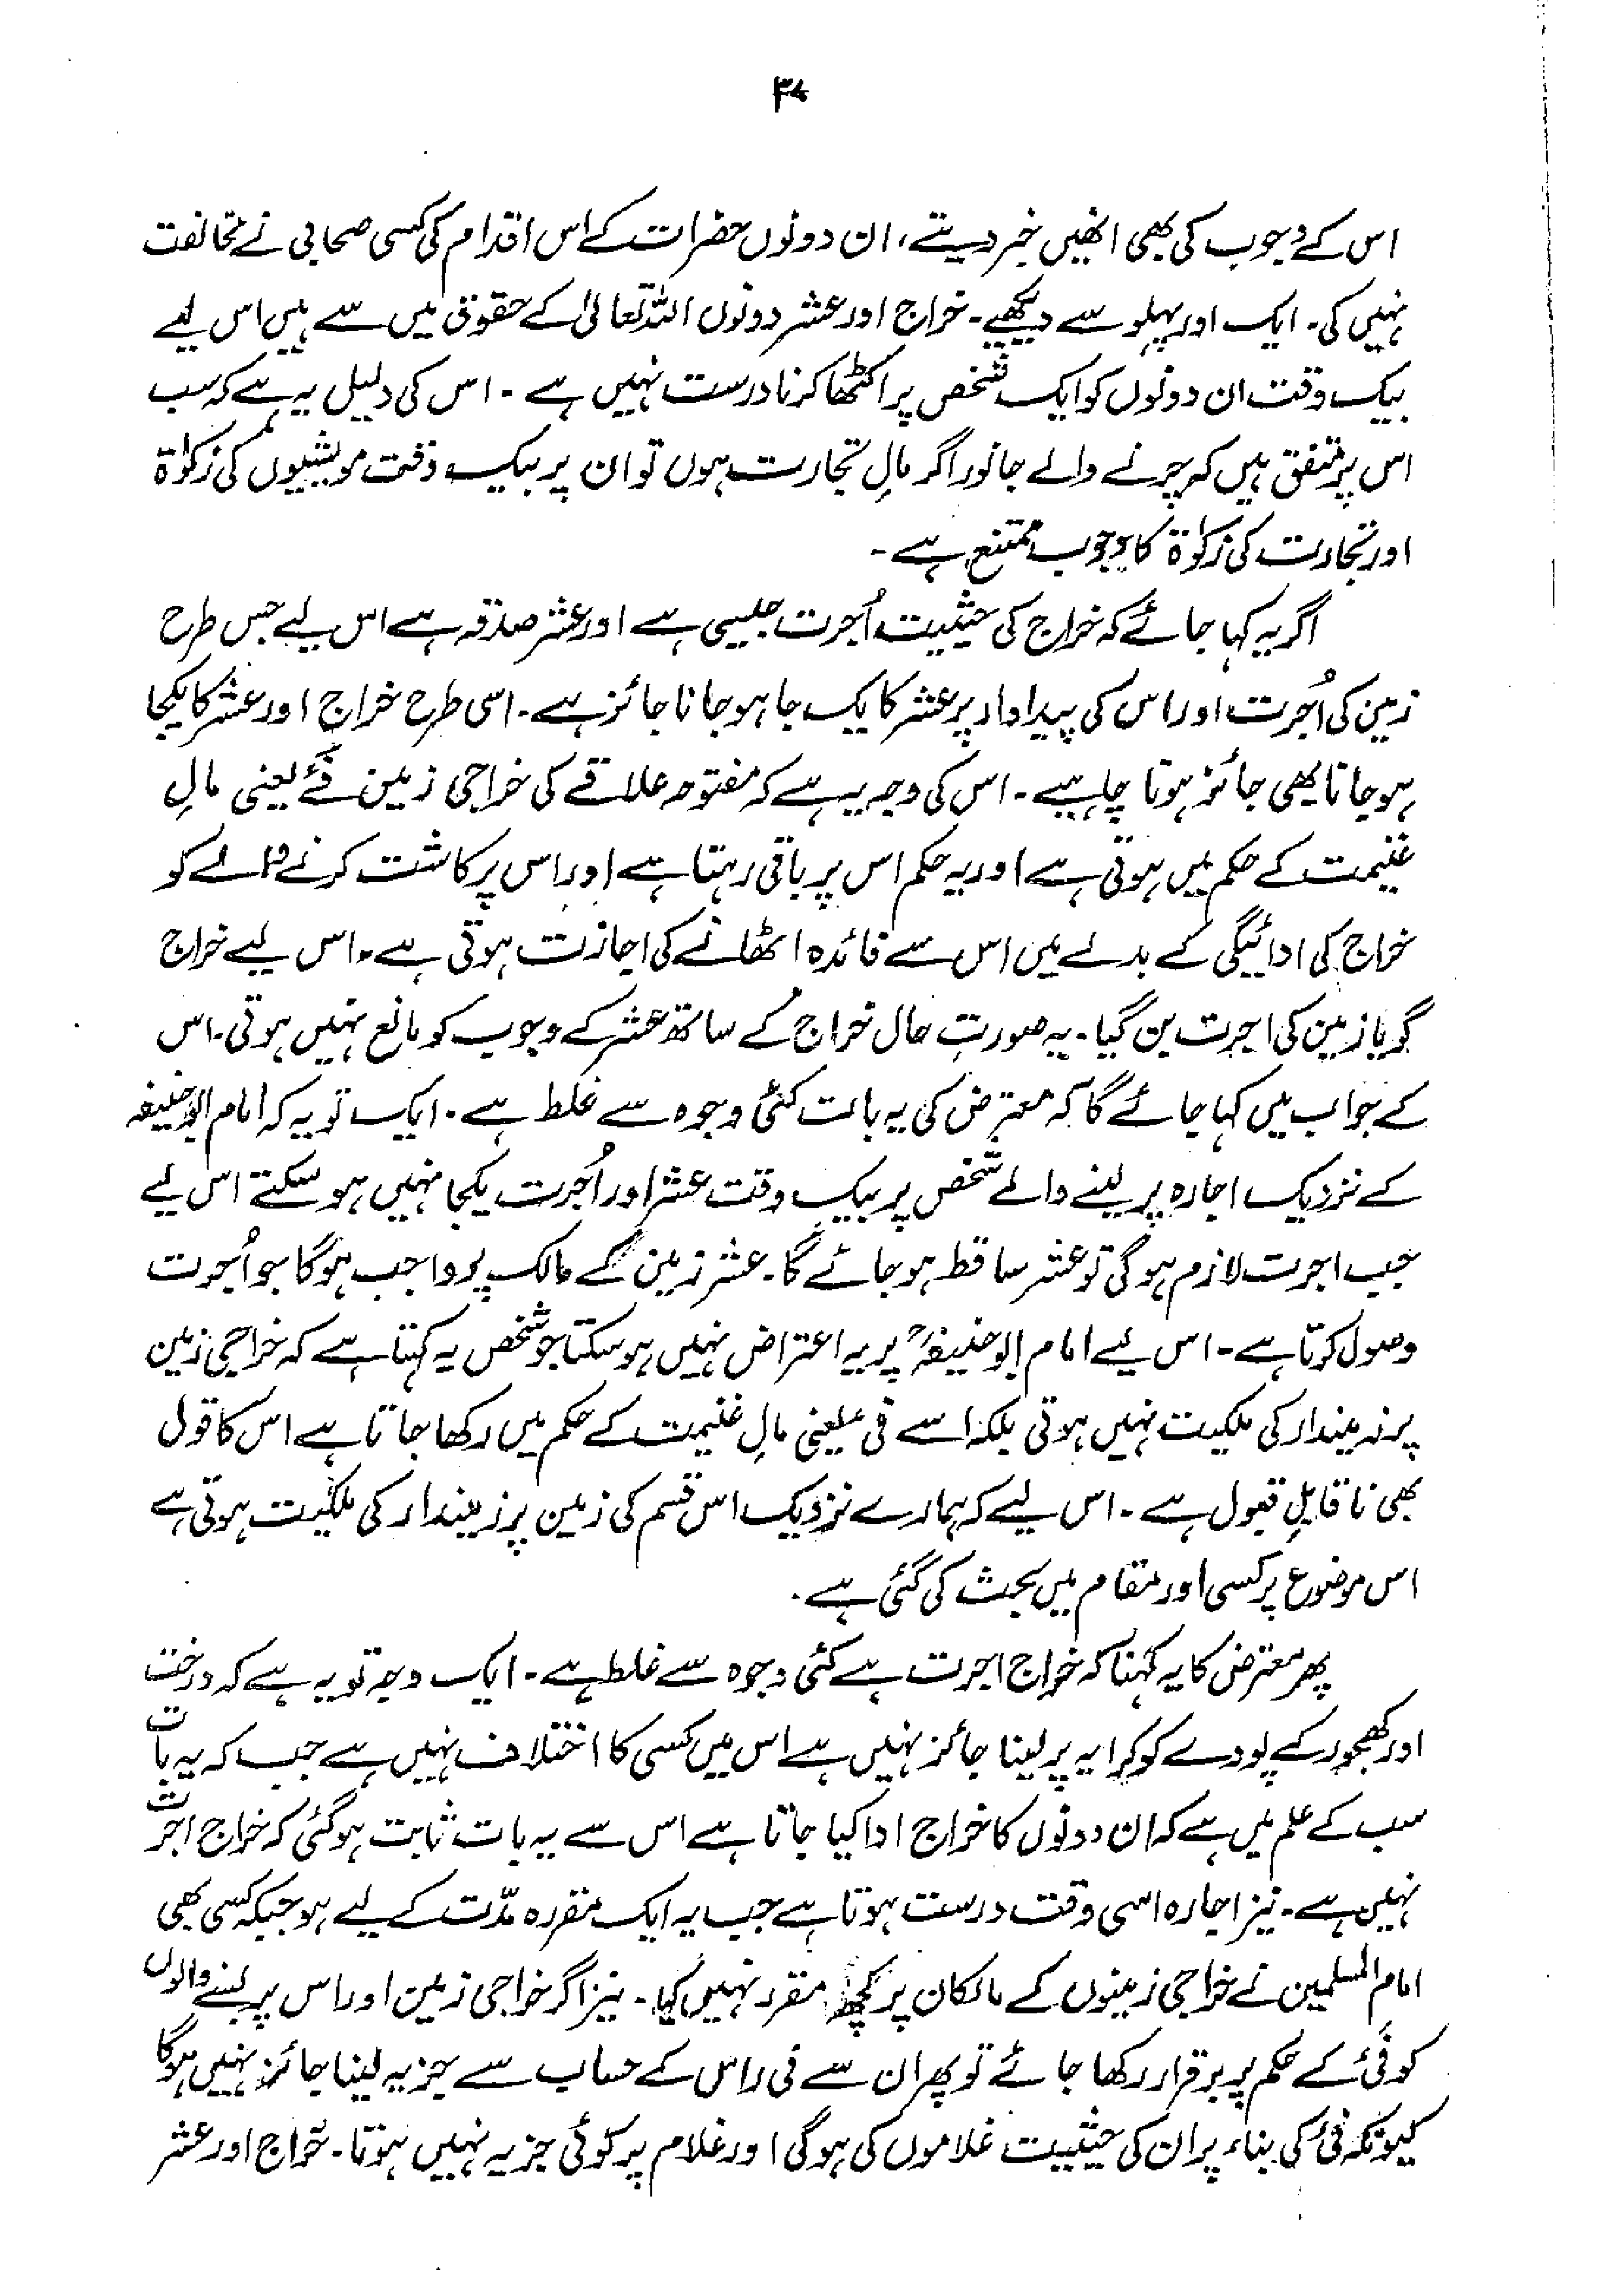 ۳۴
اس کے وجوب کی بھی انھیں خبر دیتے، ان دونوں حضرات کے اس اقدام کی کسی صحابی نے مخالفت
نہیں کی۔ ایک اور پہلو سے دیکھیے۔ خراج اور عشر دونوں اللہ تعالیٰ کے حقوق میں سے ہیں اس لیے
بیک وقت ان دونوں کو ایک شخص پر اکٹھا کرنا درست نہیں ہے۔ اس کی دلیل یہ ہے کہ سب
اس پر متفق ہیں کہ چرنے والے جانور اگر مالِ تجارت ہوں تو ان پر بیک وقت مویشیوں کی زکوٰۃ
اور تجارت کی زکوٰۃ کا وجوب ممتنع ہے۔
اگر یہ کہا جائے کہ خراج کی حیثیت اُجرت جیسی ہے اور عشر صدقہ ہے اس لیے جس طرح
زمین کی اُجرت اور اس کی پیداوار پر عشر کا یک جا ہو جانا جائز ہے۔ اسی طرح خراج اور عشر کا یکجا
ہو جانا بھی جائز ہونا چاہیے۔ اس کی وجہ یہ ہے کہ مفتوحہ علاقے کی خراجی زمین فَئے یعنی مالِ
غنیمت کے حکم میں ہوتی ہے اور یہ حکم اس پر باقی رہتا ہے اور اس پر کاشت کرنے والے کو
خراج کی ادائیگی کے بدلے میں اس سے فائدہ اٹھانے کی اجازت ہوتی ہے۔ اس لیے خراج
گویا زمین کی اجرت بن گیا۔ یہ صورتِ حال خراج کے ساتھ عشر کے وجوب کو مانع نہیں ہوتی۔ اس
کے جواب میں کہا جائے گا کہ معترض کی یہ بات کئی وجوہ سے غلط ہے۔ ایک تو یہ کہ امام ابو حنیفہ
کے نزدیک اجارہ پر لینے والے شخص پر بیک وقت عشر اور اُجرت یکجا نہیں ہو سکتے اس لیے
جب اجرت لازم ہوگی تو عشر ساقط ہو جائے گا۔ عشر زمین کے مالک پر واجب ہوگا جو اُجرت
وصول کرتا ہے۔ اس لیے امام ابو حنیفہؒ پر یہ اعتراض نہیں ہو سکتا جو شخص یہ کہتا ہے کہ خراجی زمین
پر زمیندار کی ملکیت نہیں ہوتی بلکہ اسے فی یعنی مالِ غنیمت کے حکم میں رکھا جاتا ہے اس کا قول
بھی ناقابلِ قبول ہے۔ اس لیے کہ ہمارے نزدیک اس قسم کی زمین پر زمیندار کی ملکیت ہوتی ہے
اس موضوع پر کسی اور مقام میں بحث کی گئی ہے۔
پھر معترض کا یہ کہنا کہ خراج اجرت ہے کئی وجوہ سے غلط ہے۔ ایک وجہ تو یہ ہے کہ درخت
اور کھجور کے پودے کو کرایہ پر لینا جائز نہیں ہے اس میں کسی کا اختلاف نہیں ہے جب کہ یہ بات
سب کے علم میں ہے کہ ان دونوں کا خراج ادا کیا جاتا ہے اس سے یہ بات ثابت ہوگئی کہ خراج اجرت
نہیں ہے۔ نیز اجارہ اسی وقت درست ہوتا ہے جب یہ ایک مقررہ مدّت کے لیے ہو جبکہ کسی بھی
امام المسلمین نے خراجی زمینوں کے مالکان پر کچھ مقرر نہیں کیا۔ نیز اگر خراجی زمین اور اس پر بسنے والوں
کو فَئ کے حکم پر برقرار رکھا جائے تو پھر ان سے فی راس کے حساب سے جزیہ لینا جائز نہیں ہوگا
کیونکہ فَئ کی بناء پر ان کی حیثیت غلاموں کی ہوگی اور غلام پر کوئی جزیہ نہیں ہوتا۔ خراج اور عشر